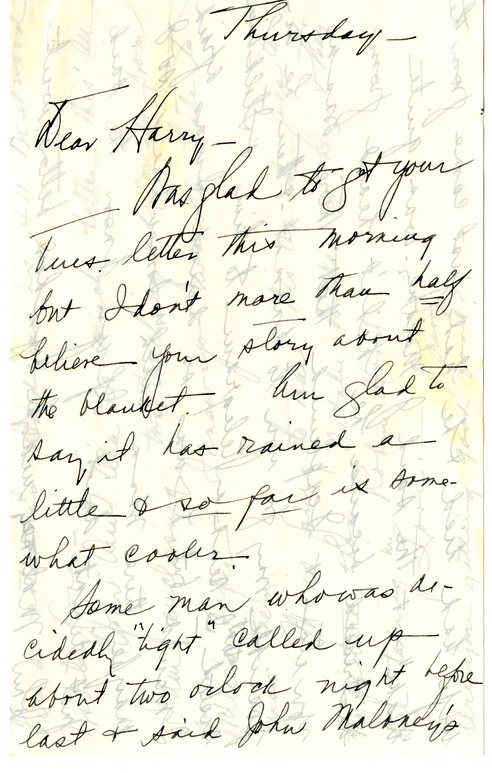 Thursday—
Dear Harry—
Was glad to get your
Tues. letter this morning
but I don't more than half
believe your story about
the blanket. Am glad to
say it has rained a
little & so far is some-
what cooler.
Some man who was de-
cidedly "tight" called up
about two oclock night before
last & said John Maloney's